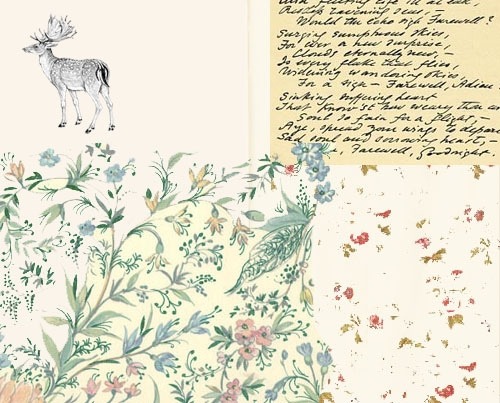 Would the echo sigh Farewell?
Surging sumphous skies,
For ever a new surprise,
Clouds eternally new,—
Is every flake that flies,
Widening wandering skies,
For a sign — Farewell, Adieu
Sinking suffering heart
That know'st how weary thou
Soul so fain for a flight,—
Aye, spread your wings to depart
Sad soul and sorrowing heart,—
Farewell, Goodnight.